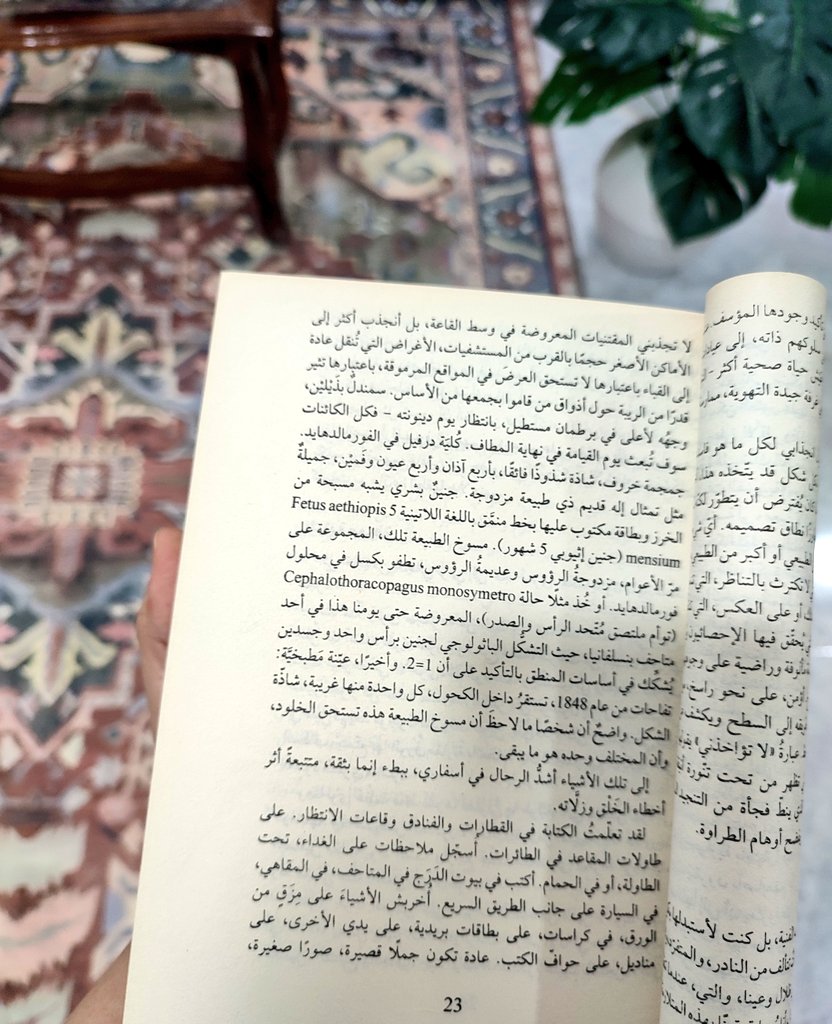 لا تجذبني المقتنيات المعروضة في وسط القاعة، بل أنجذب أكثر إلى
الأماكن الأصغر حجمًا بالقرب من المستشفيات، الأغراض التي تُنقل عادة
إلى القباء باعتبارها لا تستحق العرضَ في المواقع المرموقة، باعتبارها تثير
قدرًا من الريبة حول أذواق من قاموا بجمعها من الأساس. سمندلٌ بذَيْلَيْن،
وجهُه لأعلى في برطمان مستطيل، بانتظار يوم دينونته – فكل الكائنات
سوف تُبعث يوم القيامة في نهاية المطاف. كُليَة درفيل في الفورمالدهايد.
جمجمة خروف، شاذة شذوذًا فائقًا، بأربع آذان وأربع عيون وفَميْن، جميلةٌ
مثل تمثال إله قديم ذي طبيعة مزدوجة. جنينٌ بشري يشبه مسبحة من
الخرز وبطاقة مكتوب عليها بخط منمَّق باللغة اللاتينية Fetus aethiopis 5
mensium (جنين إثيوبي 5 شهور). مسوخ الطبيعة تلك، المجموعة على
مرّ الأعوام، مزدوجةُ الرؤوس وعديمةُ الرؤوس، تطفو بكسل في محلول
فورمالدهايد. أو خُذ مثلًا حالة Cephalothoracopagus monosymetro
(توأم ملتصق مُتّحد الرأس والصدر)، المعروضة حتى يومنا هذا في أحد
متاحف بنسلفانيا، حيث التشكُّل الباثولوجي لجنين برأس واحد وجسدين
يُشكِّك في أساسات المنطق بالتأكيد على أن 1=2. وأخيرًا، عيّنة مَطبخيَّة:
تفاحات من عام 1848، تستقرُ داخل الكحول، كل واحدة منها غريبة، شاذّة
الشكل. واضحٌ أن شخصًا ما لاحظَ أن مسوخ الطبيعة هذه تستحق الخلود،
وأن المختلف وحده هو ما يبقى.
إلى تلك الأشياء أشدُّ الرحال في أسفاري، ببطء إنما بثقة، متتبعةً أثر
أخطاء الخَلْق وزلَّاته.
لقد تعلّمتُ الكتابة في القطارات والفنادق وقاعات الانتظار. على
طاولات المقاعد في الطائرات. أسجّل ملاحظات على الغداء، تحت
الطاولة، أو في الحمام. أكتب في بيوت الدَرَج في المتاحف، في المقاهي،
في السيارة على جانب الطريق السريع. أُخربش الأشياءَ على مِزَقٍ من
الورق، في كراسات، على بطاقات بريدية، على يدي الأخرى، على
مناديل، على حوافّ الكتب. عادة تكون جملًا قصيرة، صورًا صغيرة،
23
وجودها المؤسف
سلوكهم ذاته، إلى
حياة صحية أكثر
جيدة التهوية،
لكل ما هو
شكل قد يتّخذه
يُفترض أن يتطوّر
نطاق تصميمه.
أو أكبر من
بالتناظر،
أو على العكس،
فيها
وراضية على
على نحو راسخ،
إلى السطح
عبارة «لا تؤاخذني»
تظهر من تحت تنّورة
ينطّ فجأة من
أوهام الطراوة.
بل كنت
من النادر،
والتي،